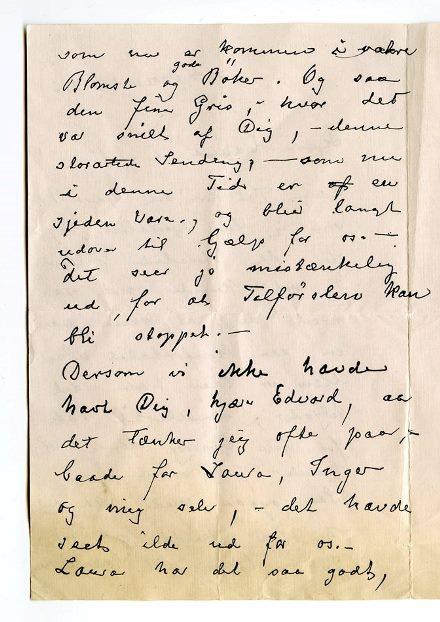 som nu er kommen i vakre
Blomster og gode Bøker. Og saa
den fine Gris, - hvor det
var snilt af Dig, - denne
storartede Sending, - som nu
i denne Tid er en
sjelden Vare, og blir langt
udover til Hjælp for os. -
Det seer jo mistænkelig
ud, for at Tilførslen kan
bli stoppet. -
Dersom vi ikke havde
havt Dig, kjære Edvard, aa
det tænker jeg ofte paa, -
baade for Laura, Inger
og mig selv, - det havde
seet ilde ud for os. -
Laura har det saa godt,